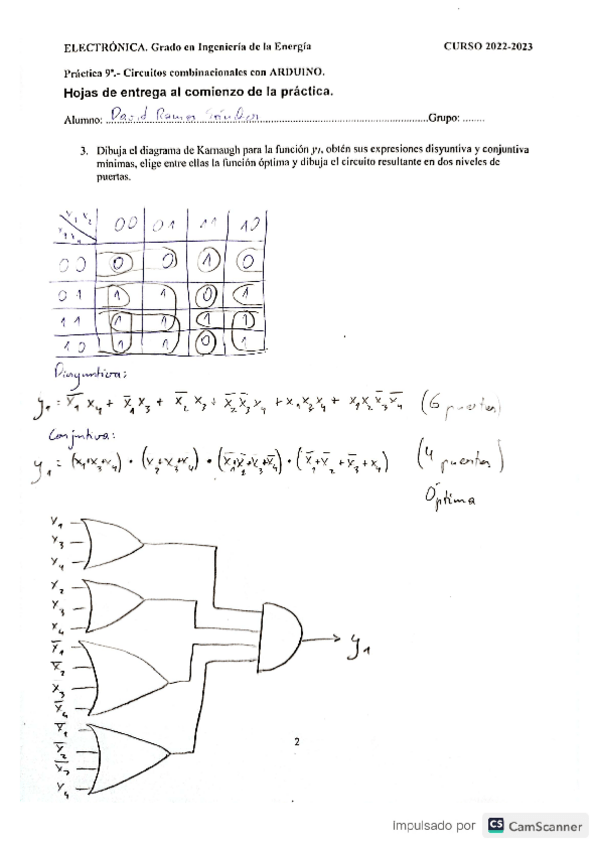 ELECTRÓNICA. Grado en Ingeniería de la Energía CURSO 2022-2023
Práctica 9ª.- Circuitos combinacionales con ARDUINO.
Hojas de entrega al comienzo de la práctica.
Alumno: David Ramos Grupo: ........
3. Dibuja el diagrama de Karnaugh para la función y₁, obtén sus expresiones disyuntiva y conjuntiva
mínimas, elige entre ellas la función óptima y dibuja el circuito resultante en dos niveles de
puertas.
x₁x₂ 00 01 11 10
x₃x₄
00 0 0 1 0
01 1 1 0 1
11 1 1 1 1
10 1 1 0 1
Disyuntiva:
y₁ = x̄₁x₄ + x̄₁x₃ + x̄₂x₃ + x̄₂x̄₃x₄ + x₁x₃x₄ + x₁x₂x̄₃x̄₄ (6 puertas)
Conjuntiva:
y₁ = (x₁+x₃+x₄) · (x₂+x₃+x₄) · (x̄₁+x̄₂+x₃+x̄₄) · (x̄₁+x̄₂+x̄₃+x₄) (4 puertas)
Óptima
x₁
x₃
x₄
x₂
x₃
x₄
x̄₁
x̄₂
x₃
x̄₄
x̄₁
x̄₂
x̄₃
x₄
y₁
2
Impulsado por CS CamScanner